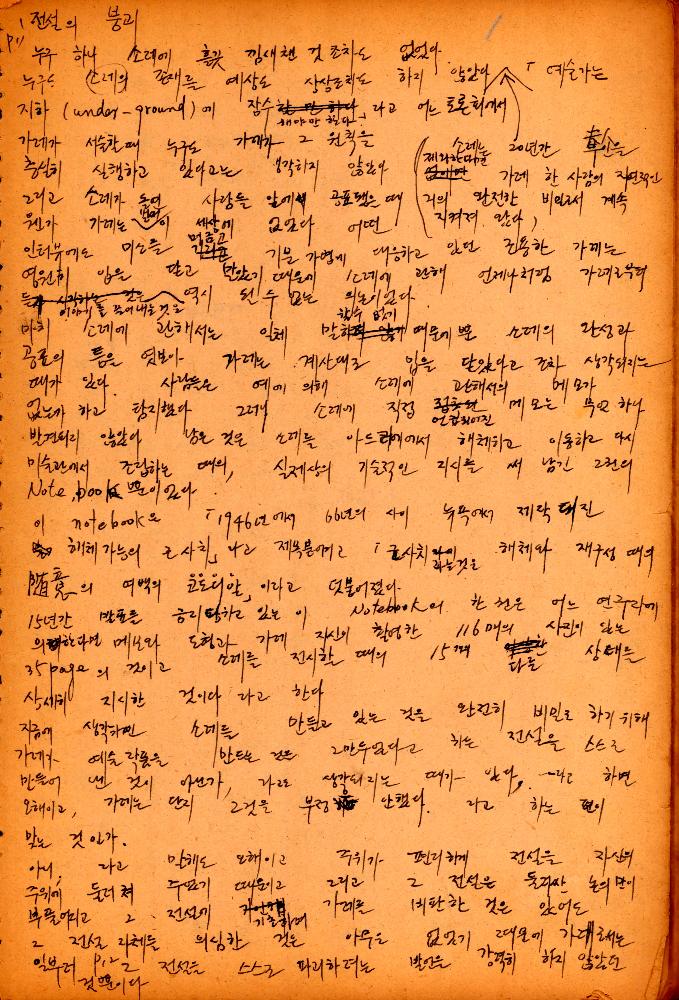 P.1 전설의 붕괴
누구 하나 소레에 흘끗 낌새챈 것조차도 없었다.
누구도 소레의 존재를 예상도 상상조차도 하지 않았다 「예술가는
지하 (under-ground)에 잠수 해야만 한다」라고 어느 토론회에서
가례가 서술한 때 누구도 가례가 그 원칙을
충실히 실행하고 있다고는 생각하지 않았다
(소레는 20년간 부인을
제외한다면 가례 한 사람의
거의 완전한 비밀로서 계속
지켜져 왔다)
그리고 소레가 돌연 사람들 앞에서 공표됐을 때
가례는 이 세상에 없었다 어떤
인터뷰에도 미소를 머금고 기분 가볍게 대응하고 있던 조용한 가례는
영원히 입을 닫고 말았기 때문에 소레에 관해 언제나처럼 가례로부터
이야기를 끌어내는 것은 역시 될 수 없는 의논이었다.
마치 소레에 관해서는 일체 말할 수 없기 때문에 뿐 소레의 완성과
공표의 틈을 엿보아 가례는 계산대로 입을 닫았다고 조차 생각되리는
때가 있다. 사람들은 예에 의해 소레에 관해서의 메모가
없는가 하고 탐지했다 그러나 소레에 직접 언급되어진 메모는 무엇 하나
발견되리 않았다 남은 것은 소레를 아트리에에서 해체하고 이동하고 다시
미술관에서 조립하는 때의, 실제상의 기술적인 지시를 써 남긴 2권의
Note, book뿐이었다.
이 notebook은 「1946년에서 66년의 사이 뉴욕에서 제작되어진
해체가능의 근사치」라고 제목붙여지고 「근사치라는 것은 해체와 재구성 때의
隨意의 여백의 코드디알」이라고 덧붙여졌다
15년간 발표를 금리당하고 있는 이 Notebook의 한 권은 어느 연구가에
의한다면 메모와 도형과 가례 자신이 촬영한 116매의 사진이 있는
35page의 것이고 소레를 전시할 때의 15개 다른 상태를
상세히 지시한 것이다 라고 한다
지금에 생각하면 소레를 만들고 있는 것을 완전히 비밀로 하기위해
가례가 예술작품을 만드는 것은 그만두었다고 하는 전설을 스스로
만들어 낸 것이 아닌가, 라고도 생각되리는 때가 있다. 라고 하면
오해이고, 가례는 단지 그것을 부정 안했다. 라고 하는 편이
맞는 것인가.
아니, 라고 말해도 오해이고 주위가 편리하게 전설을 자신의
주위에 둘러쳐 주었기 때문이고 그리고 그 전설은 둘러싼 논의만이
부풀어리고 그 전설에 기초하여 가례를 비판한 것은 있어도
그 전설 자체를 의심한 것은 아무도 없었기 때문에 가례로서는
일부러 P.1,2 그 전설을 스스로 파괴하려는 발언을 강력히 하지 않았던
것뿐이다